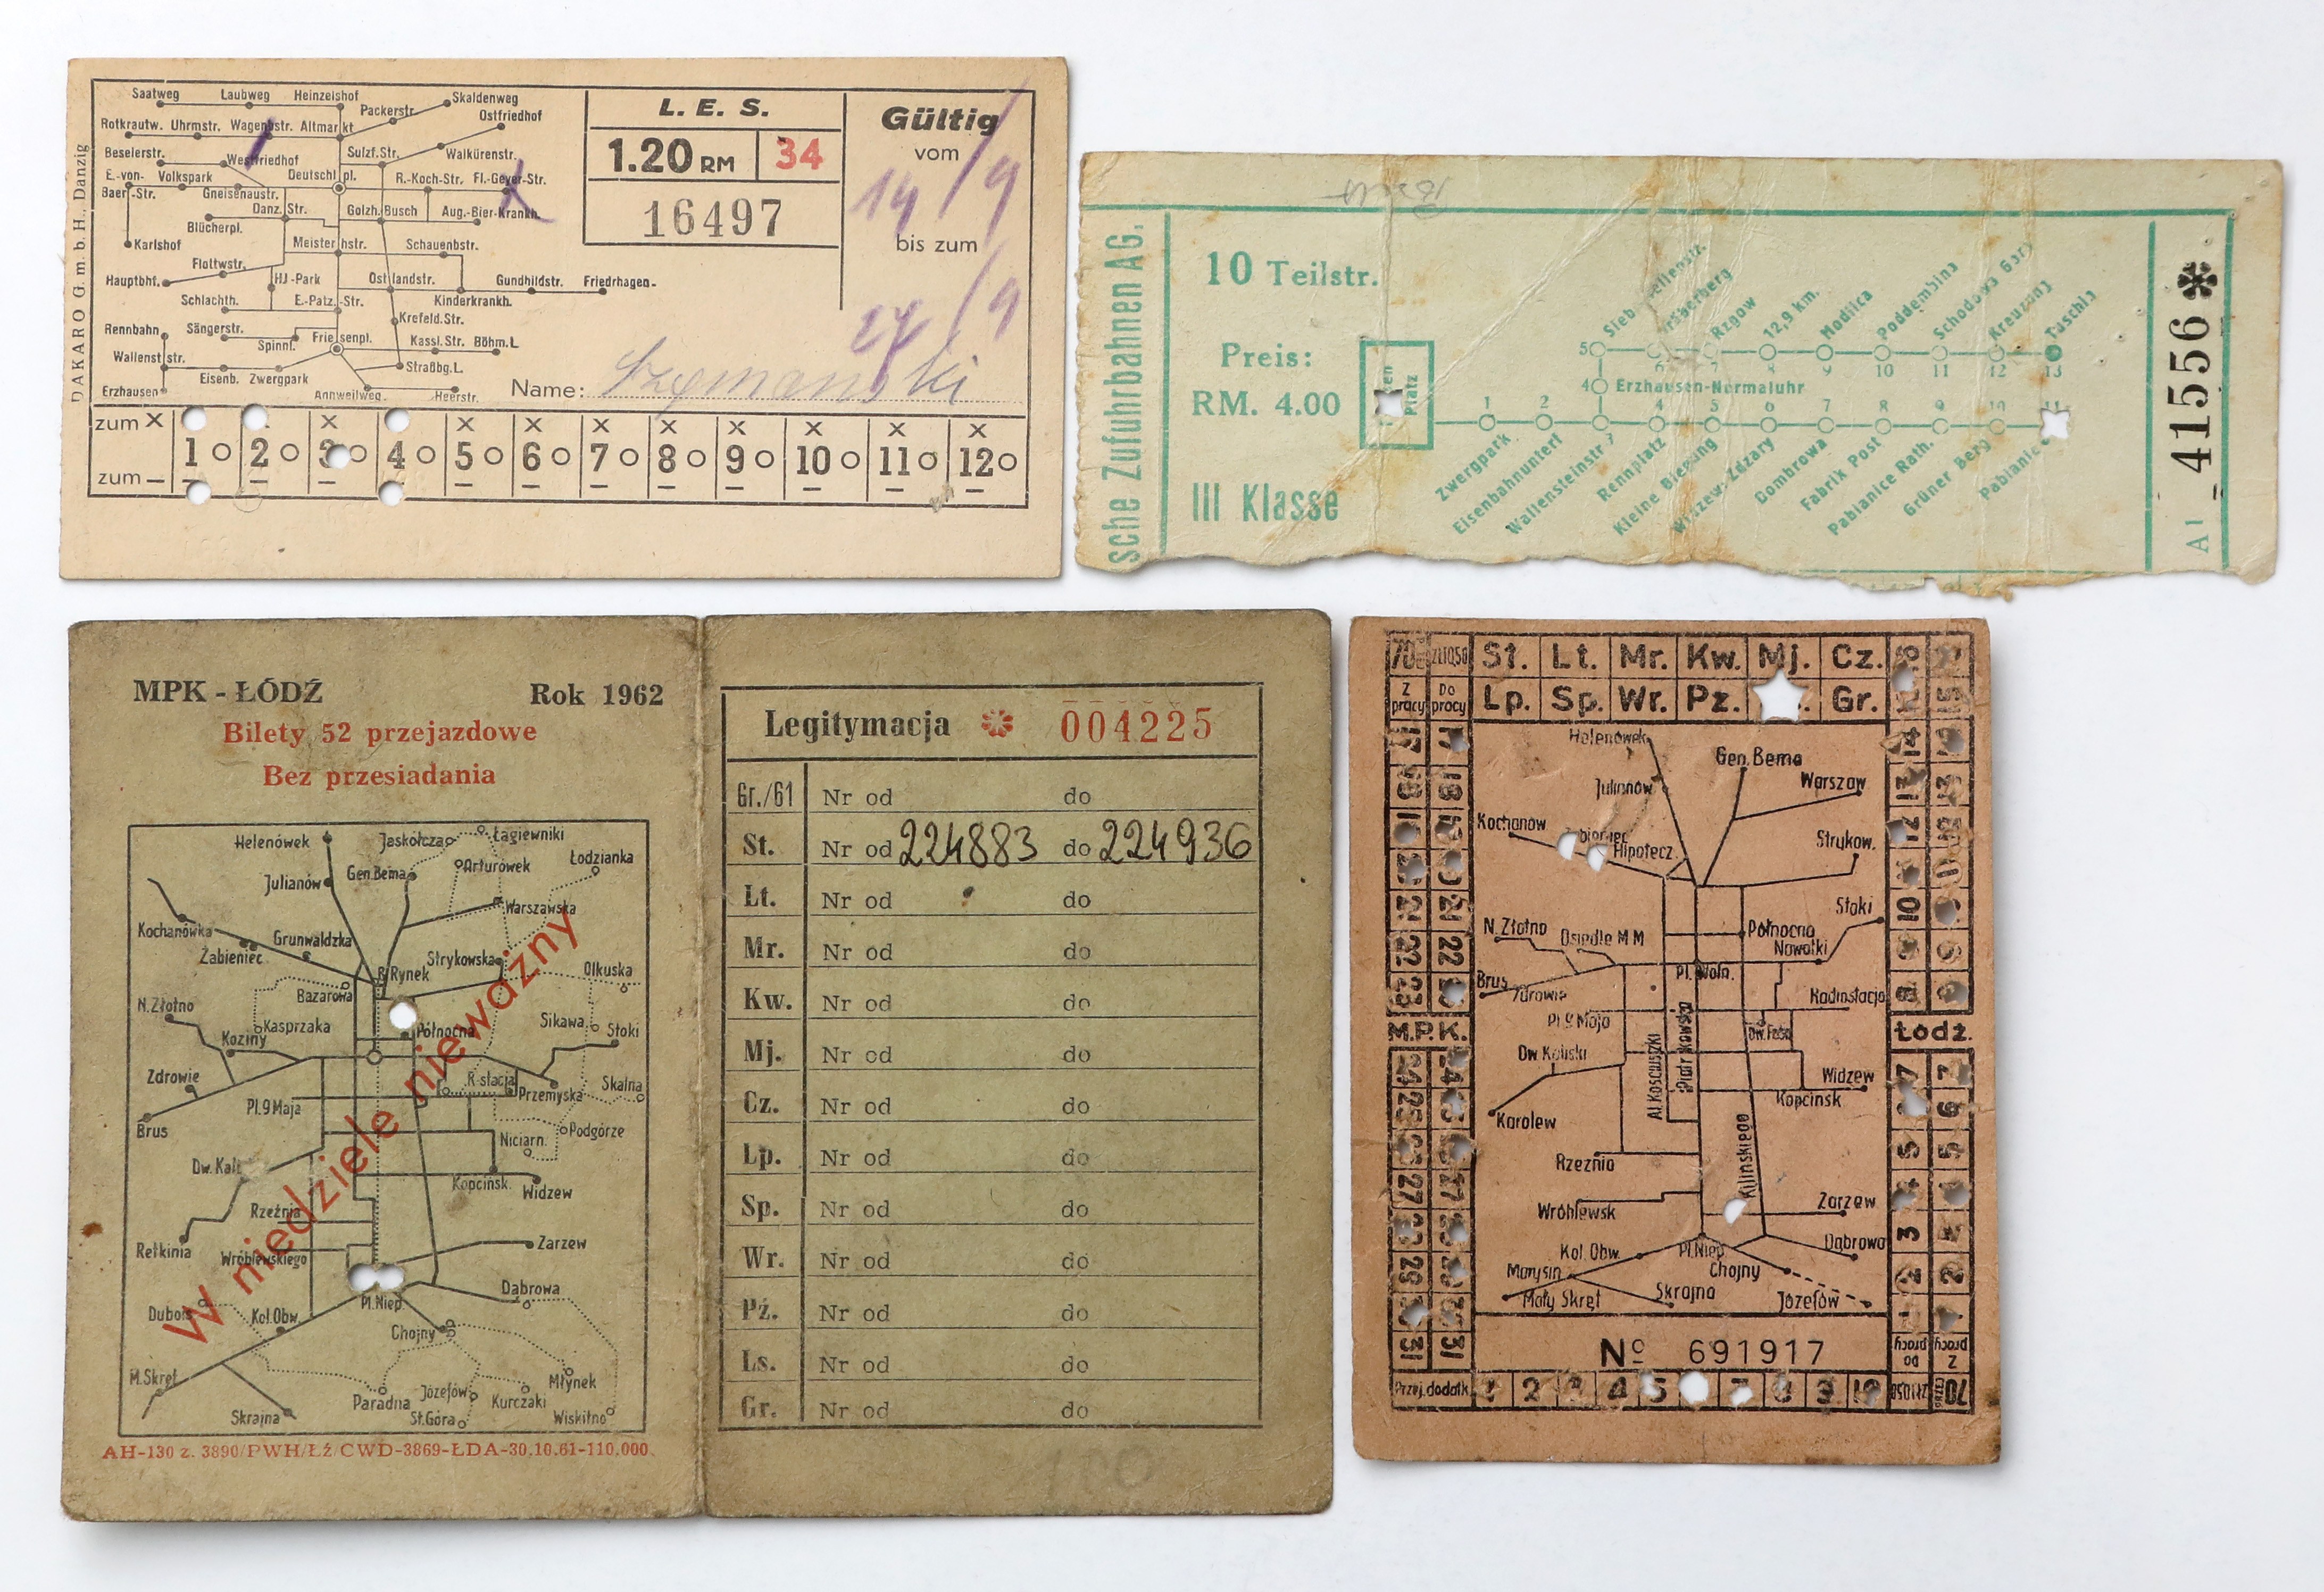 DAKARO G.m.b.H., Danzig
Saatweg Laubweg Heinzelshof Skaldenweg
Packerstr. Ostfriedhof
Rotkrautw. Uhrmstr. Wagenbstr. Altmarkt
Beselerstr. Westfriedhof Sulzf.Str. Walkürenstr.
E.-von- Volkspark Deutschl.pl. R.-Koch-Str. Fl.-Geyer-Str.
Baer-Str. Gneisenaustr.
Danz.Str. Golzh.Busch Aug.-Bier-Krankh.
Blücherpl.
Karlshof Meisterhstr. Schauenbstr.
Flottwstr.
Hauptbhf. HJ-Park Ostlandstr. Gundhildstr. Friedrhagen.
Schlachth. E.-Patz.-Str. Kinderkrankh.
Krefeld.Str.
Rennbahn Sängerstr. Friesenpl. Kassl.Str. Böhm.L
Spinnl.
Wallenststr. Straßbg.L.
Eisenb. Zwergpark
Erzhausen Annweilweg. Heerstr.
L. E. S.
1.20 RM 34
16497
Gültig
vom
19/9
bis zum
27/9
Name: Szymanski
zum X X X X X X X X X X
1 O 2 O 3 O 4 O 5 O 6 O 7 O 8 O 9 O 10 O 11 O 12 O
zum –
sche Zufuhrbahnen AG.
10 Teilstr.
Preis:
RM. 4.00
III Klasse
Platz
Rzgow 12,9 km. Modlica Poddembina Kreuzung Tuschin
5 6 7 8 9 10 11 12 13
4 Erzhausen-Normaluhr
1 2 3 4 5 6 7 8 9 10 11
Zwergpark Eisenbahnunterf Wallensteinstr Rennplatz Kleine Biegung Widzew-Zdzary Dombrowa Fabrik Post Pabianice Rath. Grüner Berg Pabianice
A1 41556
MPK - ŁÓDŹ Rok 1962
Bilety 52 przejazdowe
Bez przesiadania
Helenówek Jaskółcza Łagiewniki
Julianów Gen.Bema Arturówek Łodzianka
Warszawska
Kochanówka Grunwaldzka
Żabieniec Strykowska
B.Rynek Olkuska
Bazarowa
N.Złotno Kasprzaka Północna Sikawa Stoki
Koziny
Zdrowie R-stacja Skalna
Pl.9Maja Przemyska
Brus Niciarn. Podgórze
Dw.Kal
Kopcińsk. Widzew
Rzeźnia
Retkinia Wróblewskiego Zarzew
Dąbrowa
Dubois Kol.Obw. Pl.Niep.
Chojny
M.Skręt Młynek
Paradna Józefów Kurczaki
Skrajna St.Góra Wiskitno
W niedziele nieważny
AH-130 z. 3890/PWH/Łź/CWD-3869-ŁDA-30.10.61-110.000.
Legitymacja 004225
Gr./61 Nr od do
St. Nr od 224883 do 224936
Lt. Nr od do
Mr. Nr od do
Kw. Nr od do
Mj. Nr od do
Cz. Nr od do
Lp. Nr od do
Sp. Nr od do
Wr. Nr od do
Pź. Nr od do
Ls. Nr od do
Gr. Nr od do
St. Lt. Mr. Kw. Mj. Cz.
Lp. Sp. Wr. Pz. Gr.
Z pracy Do pracy
Helenówek
Gen.Bema
Julianów Warszaw
Kochanów Strykow.
Hipotecz.
Stoki
N.Złotno Osiedle M M Północna
Nowotki
Brus Pl.Woln.
Zdrowie Radiostacja
Pl.9 Maja
Al.Kościuszki Piotrkowska
Dw.Kaliski
Widzew
Karolew Kopcińsk
Kilińskiego
Rzeźnia
Wróblewsk Zarzew
Kol.Obw. Pl.Niep. Dąbrowa
Marysin Chojny
Mały Skręt Skrajna Józefów
M.P.K. Łódź.
No 691917
Przej.dodatk. 1 2 3 4 5 7 8 9 10